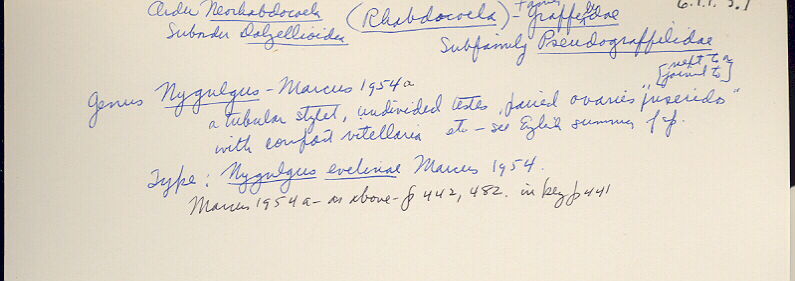 Order Neorhabdocoela (Rhabdocoela) - Family Graffillidae 6.1.1. 3.1
Suborder Dalyellioidea Subfamily Pseudograffilidae
Genus Nygulgus - Marcus 1954a [next to or joined to]
a tubular stylet, undivided testes, paired ovaries "inseridos"
with compact vitellaria etc - see English summary f sp.
Type: Nygulgus evelinae Marcus 1954.
Marcus 1954a - as above - p 442, 482. in key p 441